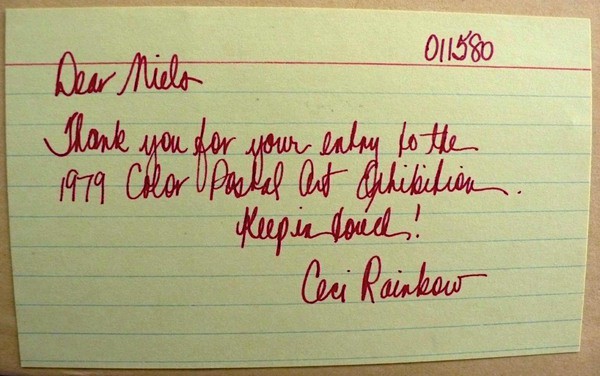 011580
Dear Niels
Thank you for your entry to the
1979 Color Postal Art Exhibition.
Keep in touch!
Ceci Rainbow